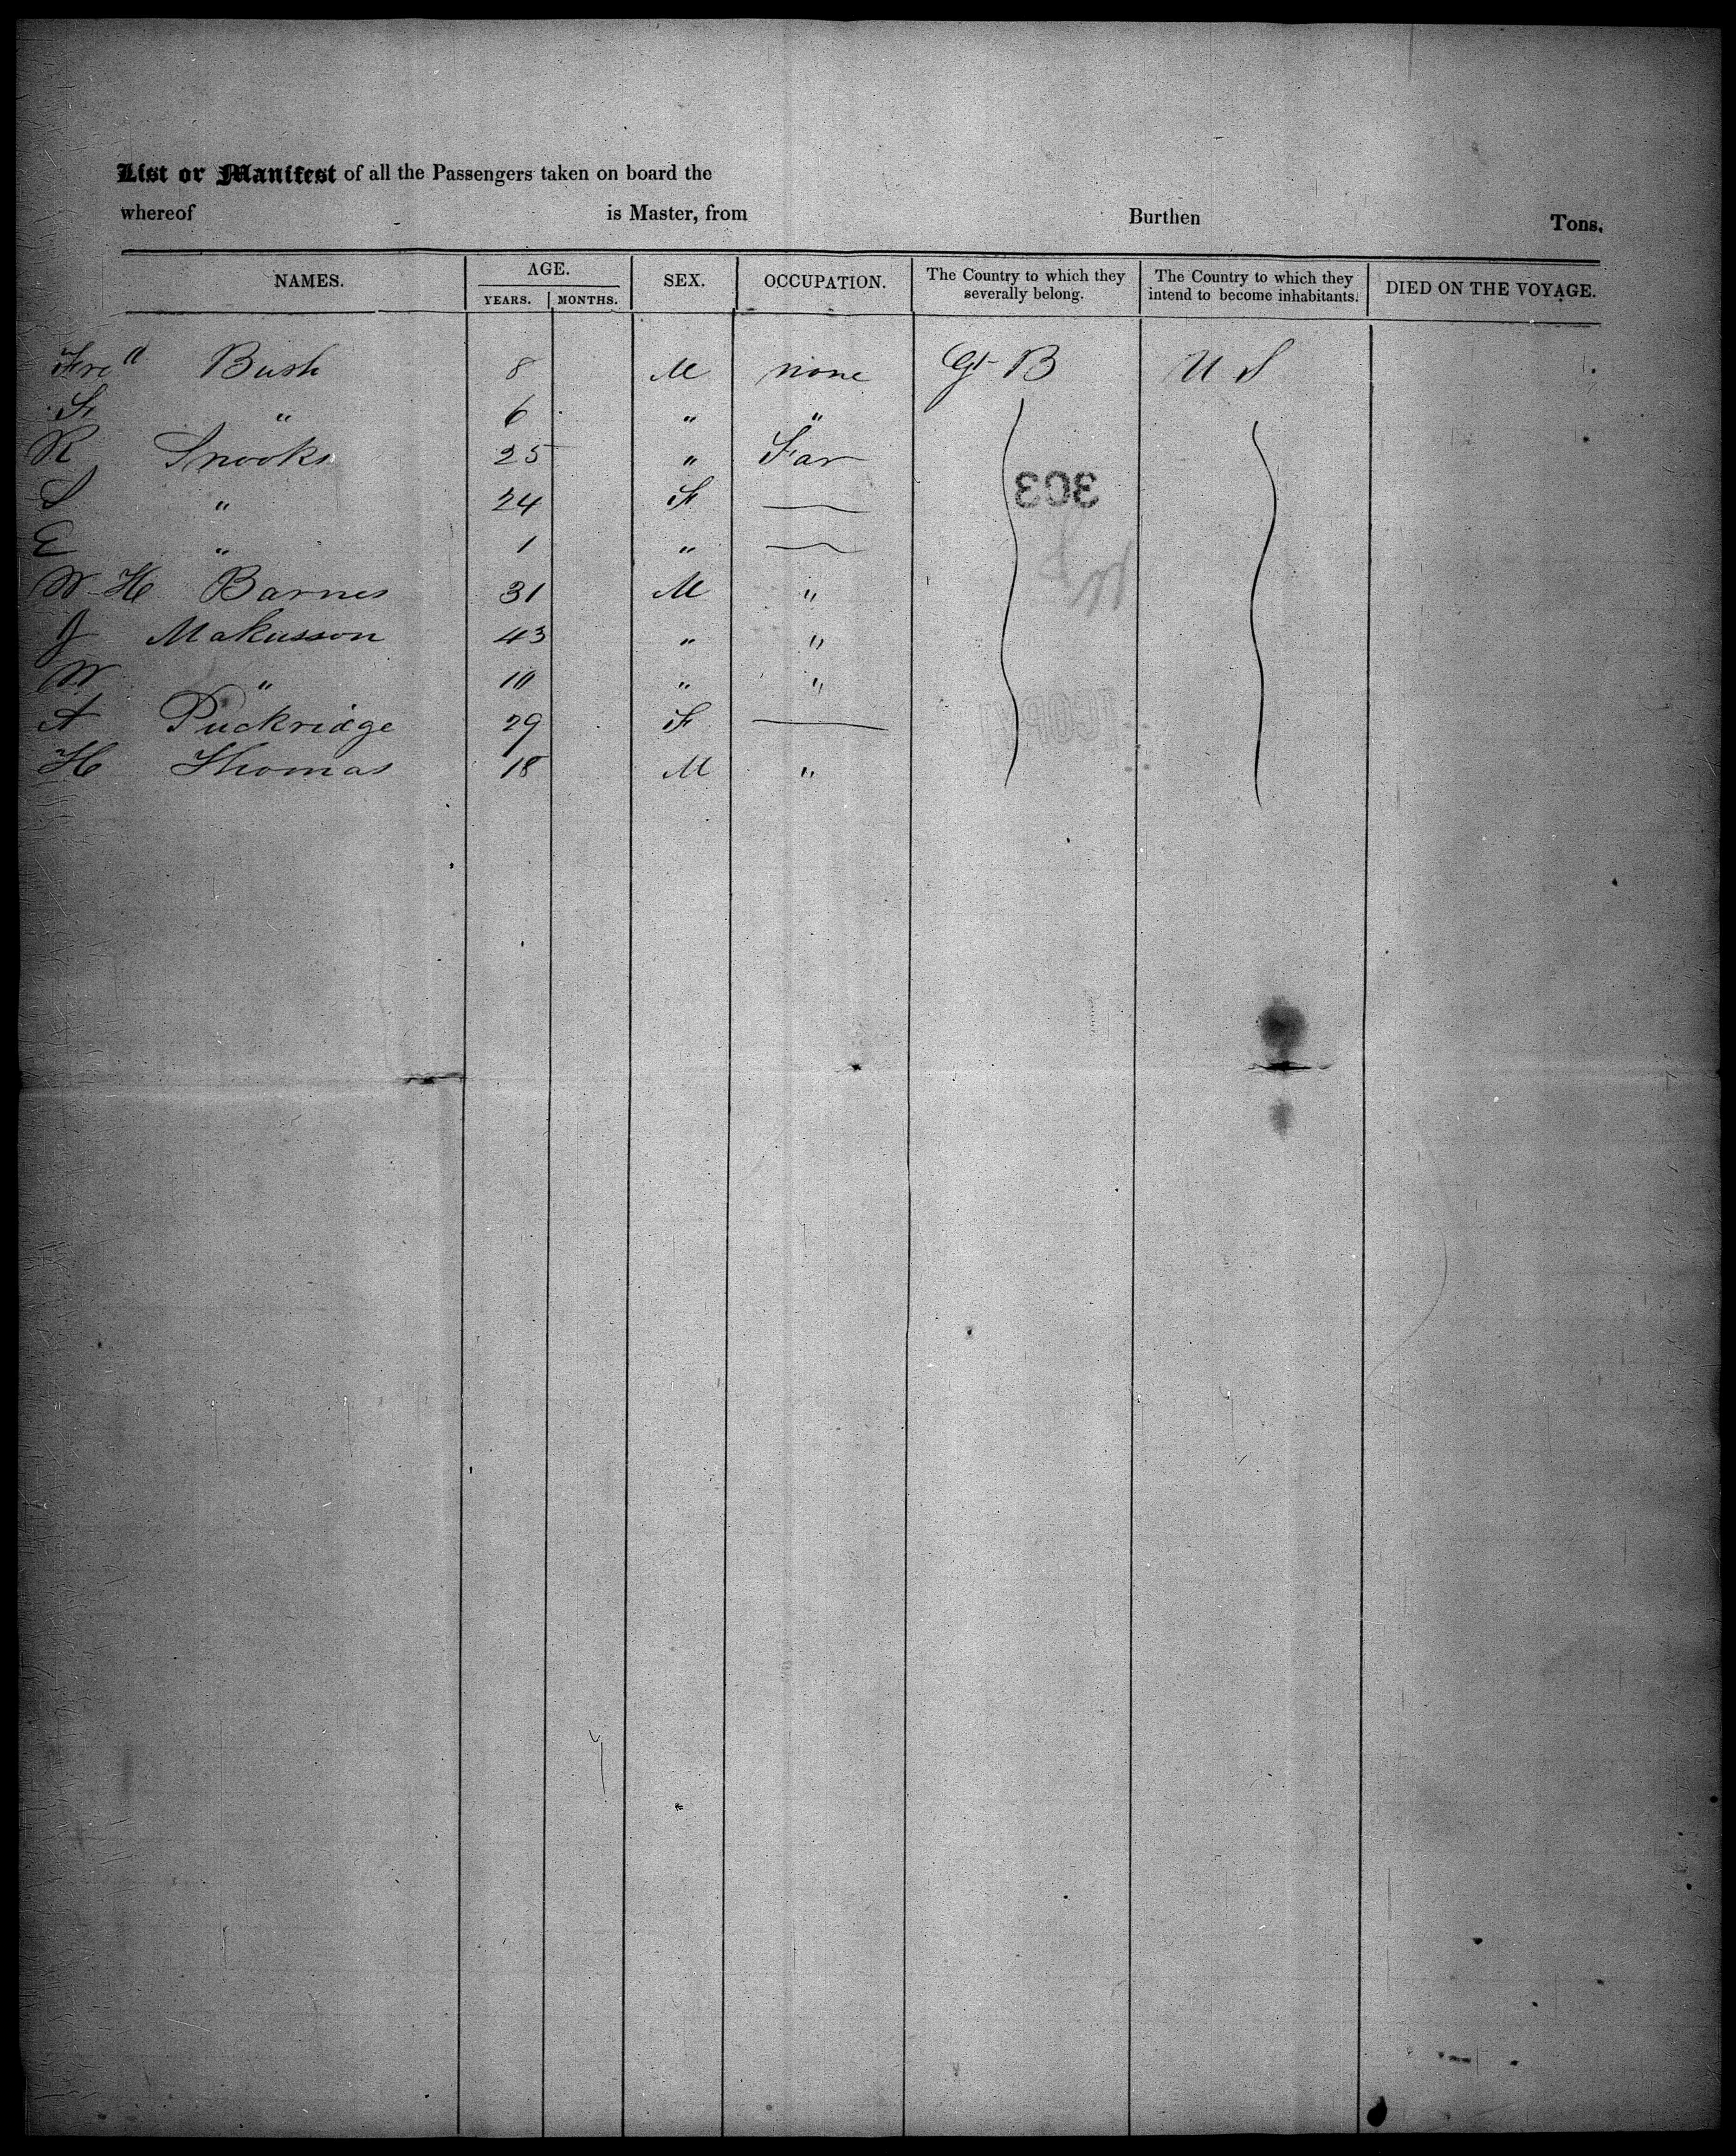 List or Manifest of all the Passengers taken on board the
whereof is Master, from Burthen Tons.
NAMES. AGE. YEARS. MONTHS. SEX. OCCUPATION. The Country to which they severally belong. The Country to which they intend to become inhabitants. DIED ON THE VOYAGE.
Fred Bush 8 M none Gt B U S
F " 6 " "
R Snooks 25 " Far
S " 24 F —
E " 1 " —
W H Barnes 31 M "
J Makusson 43 " "
W " 10 " "
A Puckridge 29 F —
H Thomas 18 M "
303
COPY